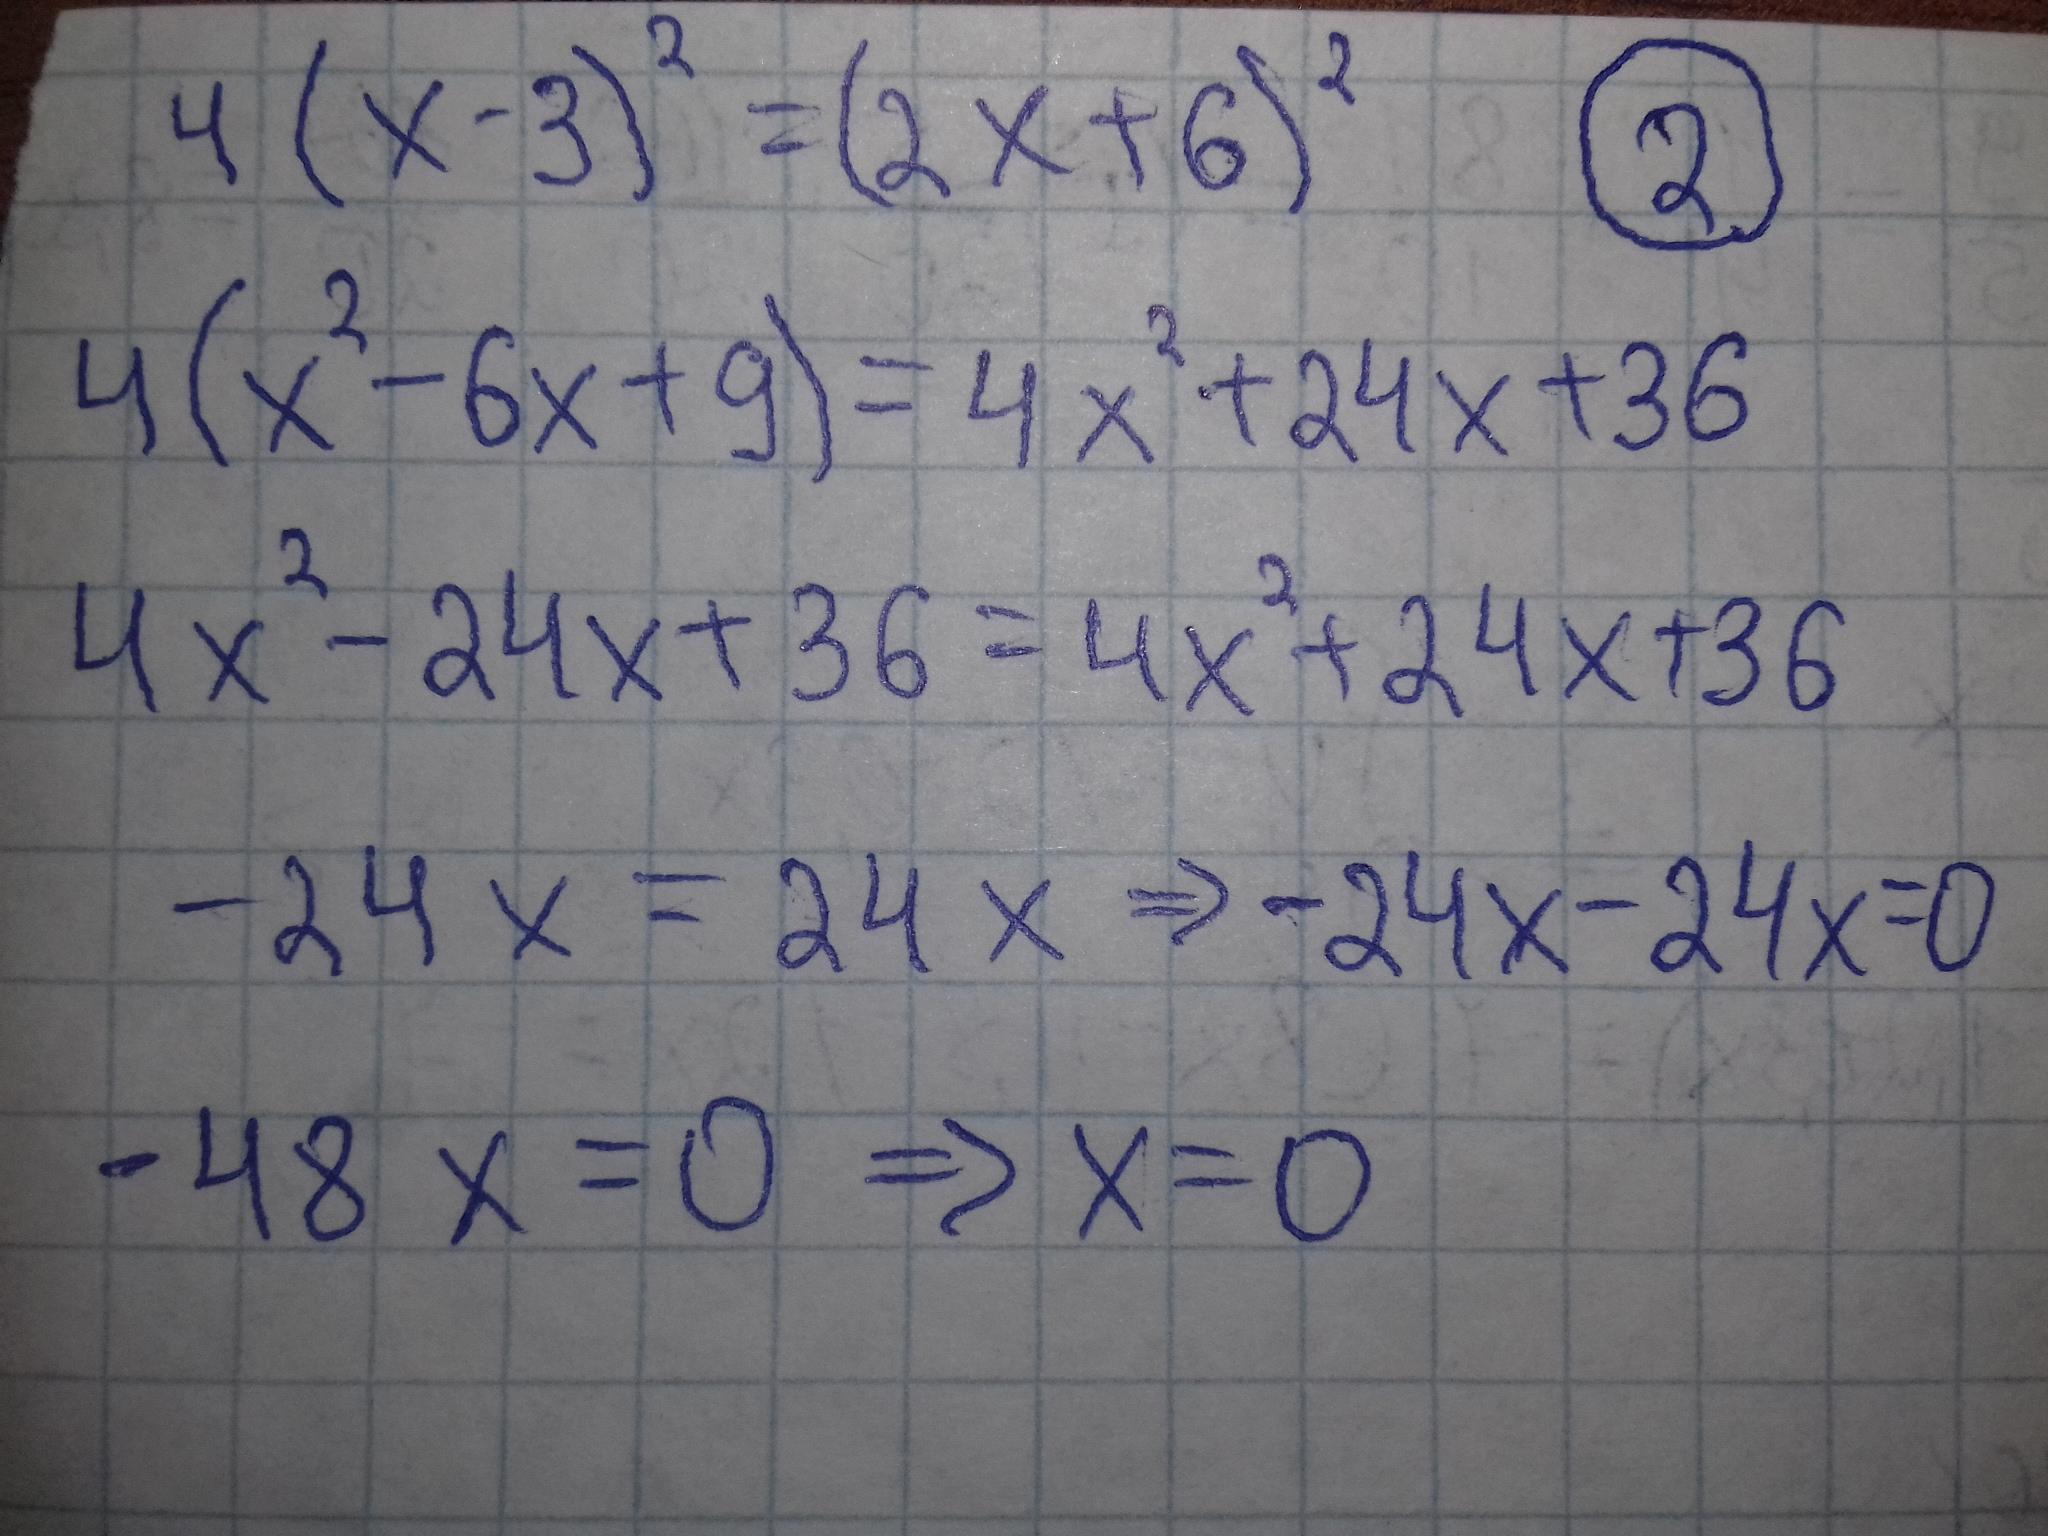 4(x-3)² = (2x+6)² 2
4(x²-6x+9) = 4x²+24x+36
4x²-24x+36 = 4x²+24x+36
-24x = 24x => -24x-24x=0
-48x = 0 => x=0